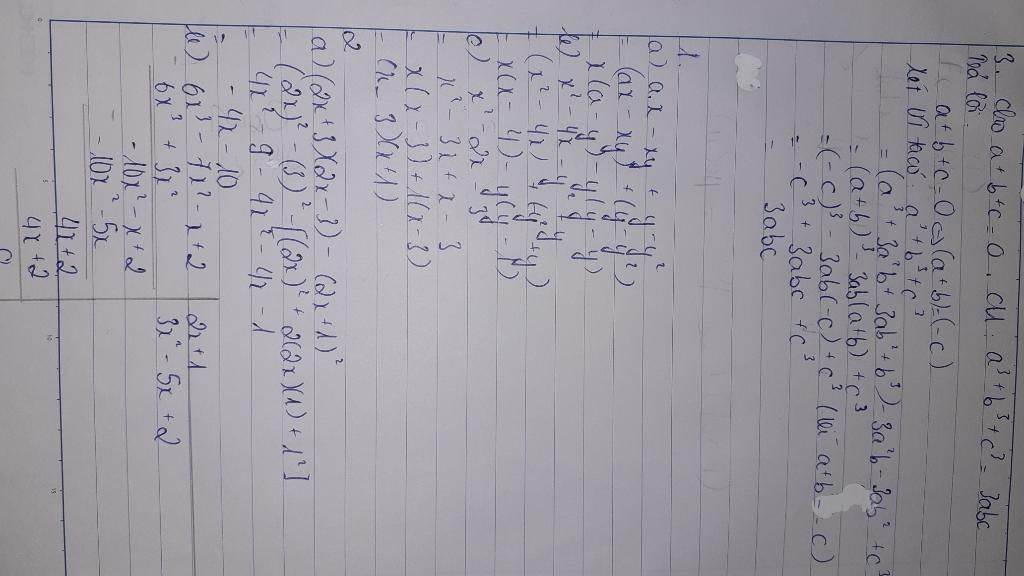 3. Cho a + b + c = 0. CM: a³ + b³ + c³ = 3abc
Trả lời:
a + b + c = 0 ⇔ (a + b) = (-c)
Xét VT ta có: a³ + b³ + c³
= (a³ + 3a²b + 3ab² + b³) - 3a²b - 3ab² + c³
= (a + b)³ - 3ab(a+b) + c³
= (-c)³ - 3ab(-c) + c³ (vì a+b = -c)
= -c³ + 3abc + c³
= 3abc
1.
a) ax - xy + y - y²
= (ax - xy) + (y - y²)
= x(a - y) - y(y - y)
b) x² - 4x - y² y
= (x² - 4x) + (y² + y)
= x(x - 4) - y(y - 1)
c) x² - 2x - 3
= x² - 3x + x - 3
= x(x - 3) + 1(x - 3)
= (x - 3)(x + 1)
2
a) (2x + 3)(2x - 3) - (2x + 1)²
= (2x)² - (3)² - [(2x)² + 2(2x)(1) + 1²]
= 4x² - 9 - 4x² - 4x - 1
= - 4x - 10
b) 6x³ - 7x² - x + 2 2x + 1
- 6x³ + 3x² 3x² - 5x + 2
- 10x² - x + 2
- - 10x² - 5x
4x + 2
4x + 2
0